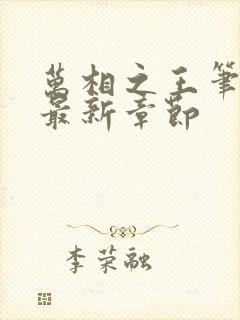 萬相之王筆
最新章節
李荣融